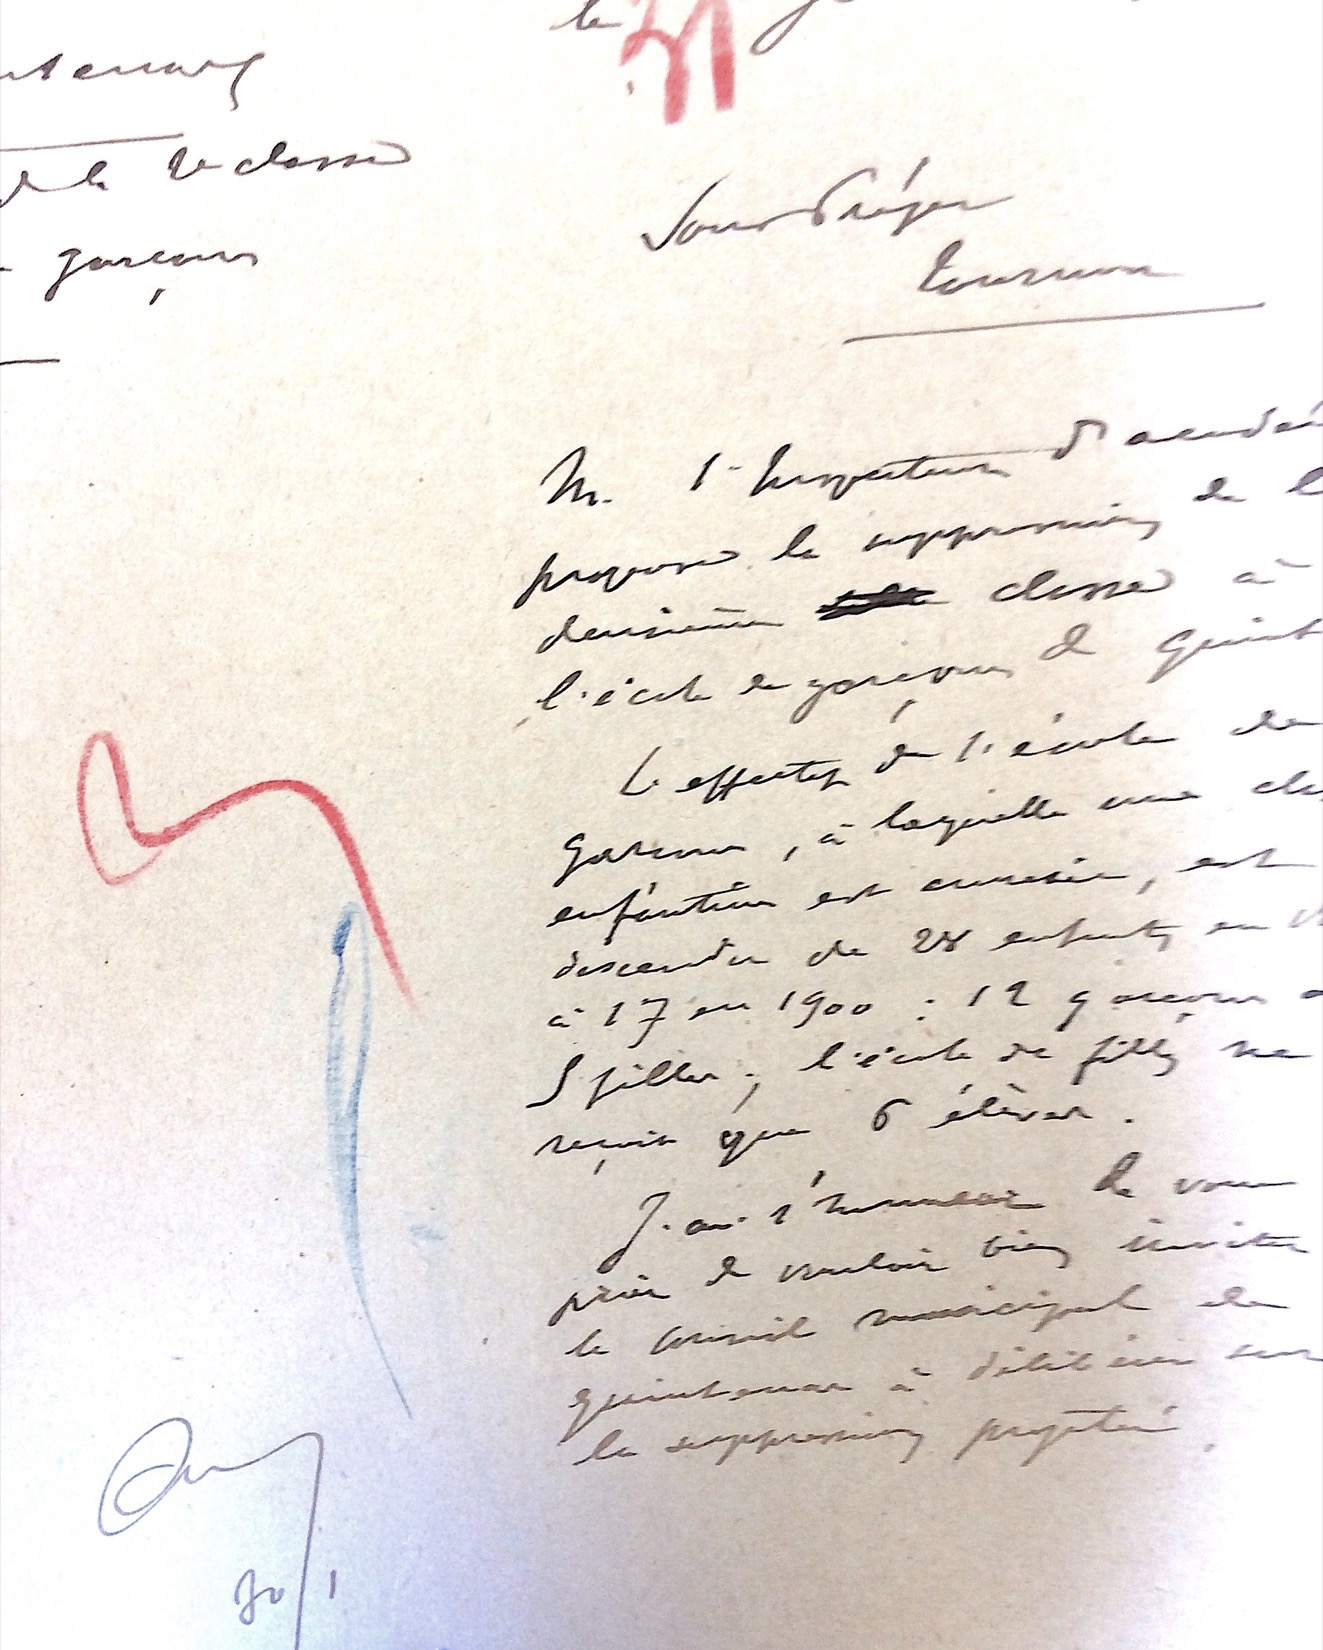 le 31
de la 2e classe
garçons
Sous-Préfet
Tournon
M. l'Inspecteur d'acadé
propose la suppression de l
deuxième classe à
l'école de garçons de Quint
L'effectif de l'école de
garçons, à laquelle une cla
enfantine est annexée, est
descendu de 28 enfants en
à 17 en 1900 : 12 garçons
5 filles ; l'école de filles ne
reçoit que 6 élèves.
J'ai l'honneur de vous
prier de vouloir bien inviter
le conseil municipal de
Quintenas à délibérer sur
la suppression projetée.
30/1